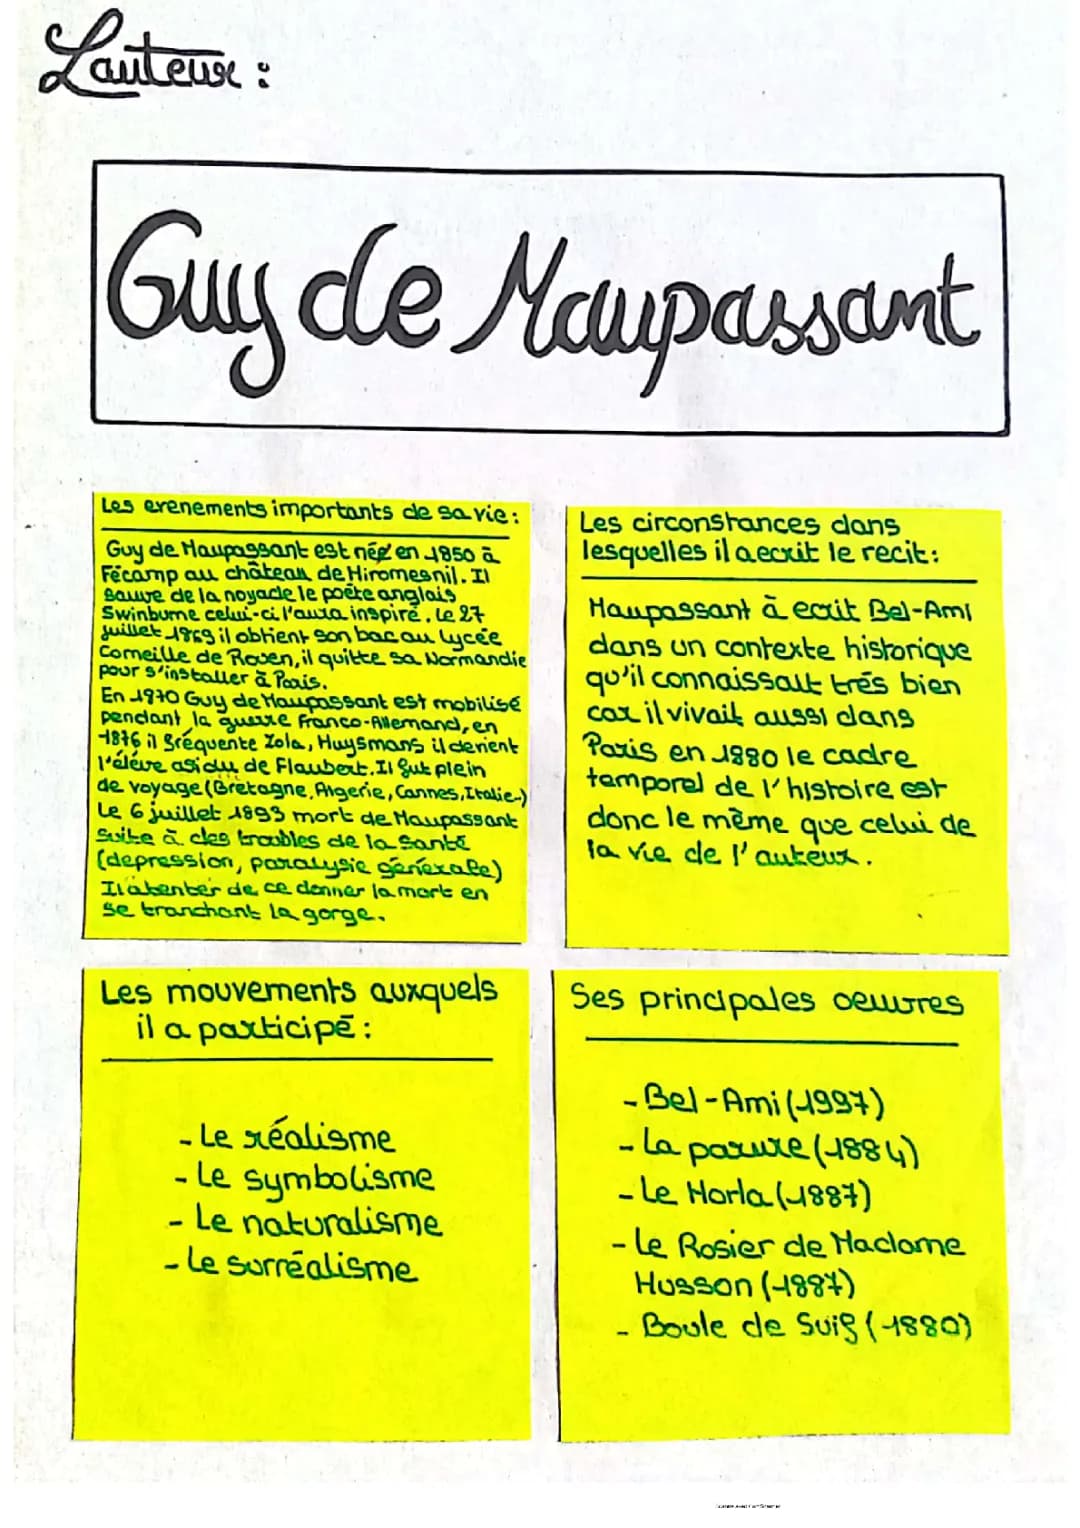 Lauteur :
Guy de Maupassant
Les evenements importants de sa vie :
Guy de Maupassant est née en 1850 à
Fécamp au château de Miromesnil. Il
sauve de la noyade le poète anglais
Swinburne celui-ci l'aura inspiré. Le 27
juillet 1869 il obtient son bac au lycée
Corneille de Rouen, il quitte sa Normandie
pour s'installer à Paris.
En 1970 Guy de Maupassant est mobilisé
pendant la guerre Franco-Allemand, en
1876 il fréquente Zola, Huysmans il devient
l'éléve asidu de Flaubert. Il fut plein
de voyage (Bretagne, Algerie, Cannes, Italie..)
Le 6 juillet 1893 mort de Maupassant
suite à des troubles de la santé
(depression, paralysie générale)
Il atenter de ce donner la mort en
se tranchant la gorge.
Les circonstances dans
lesquelles il a ecrit le recit :
Maupassant à ecrit Bel-Ami
dans un contexte historique
qu'il connaissait trés bien
car il vivait aussi dans
Paris en 1880 le cadre
temporel de l'histoire est
donc le même que celui de
la vie de l'auteur.
Les mouvements auxquels
il a participé :
- Le réalisme
- Le symbolisme
- Le naturalisme
- Le surréalisme
Ses principales oeuvres
- Bel-Ami (1997)
- La parure (1884)
- Le Horla (1887)
- Le Rosier de Madame
Husson (1887)
- Boule de Suif (1880)